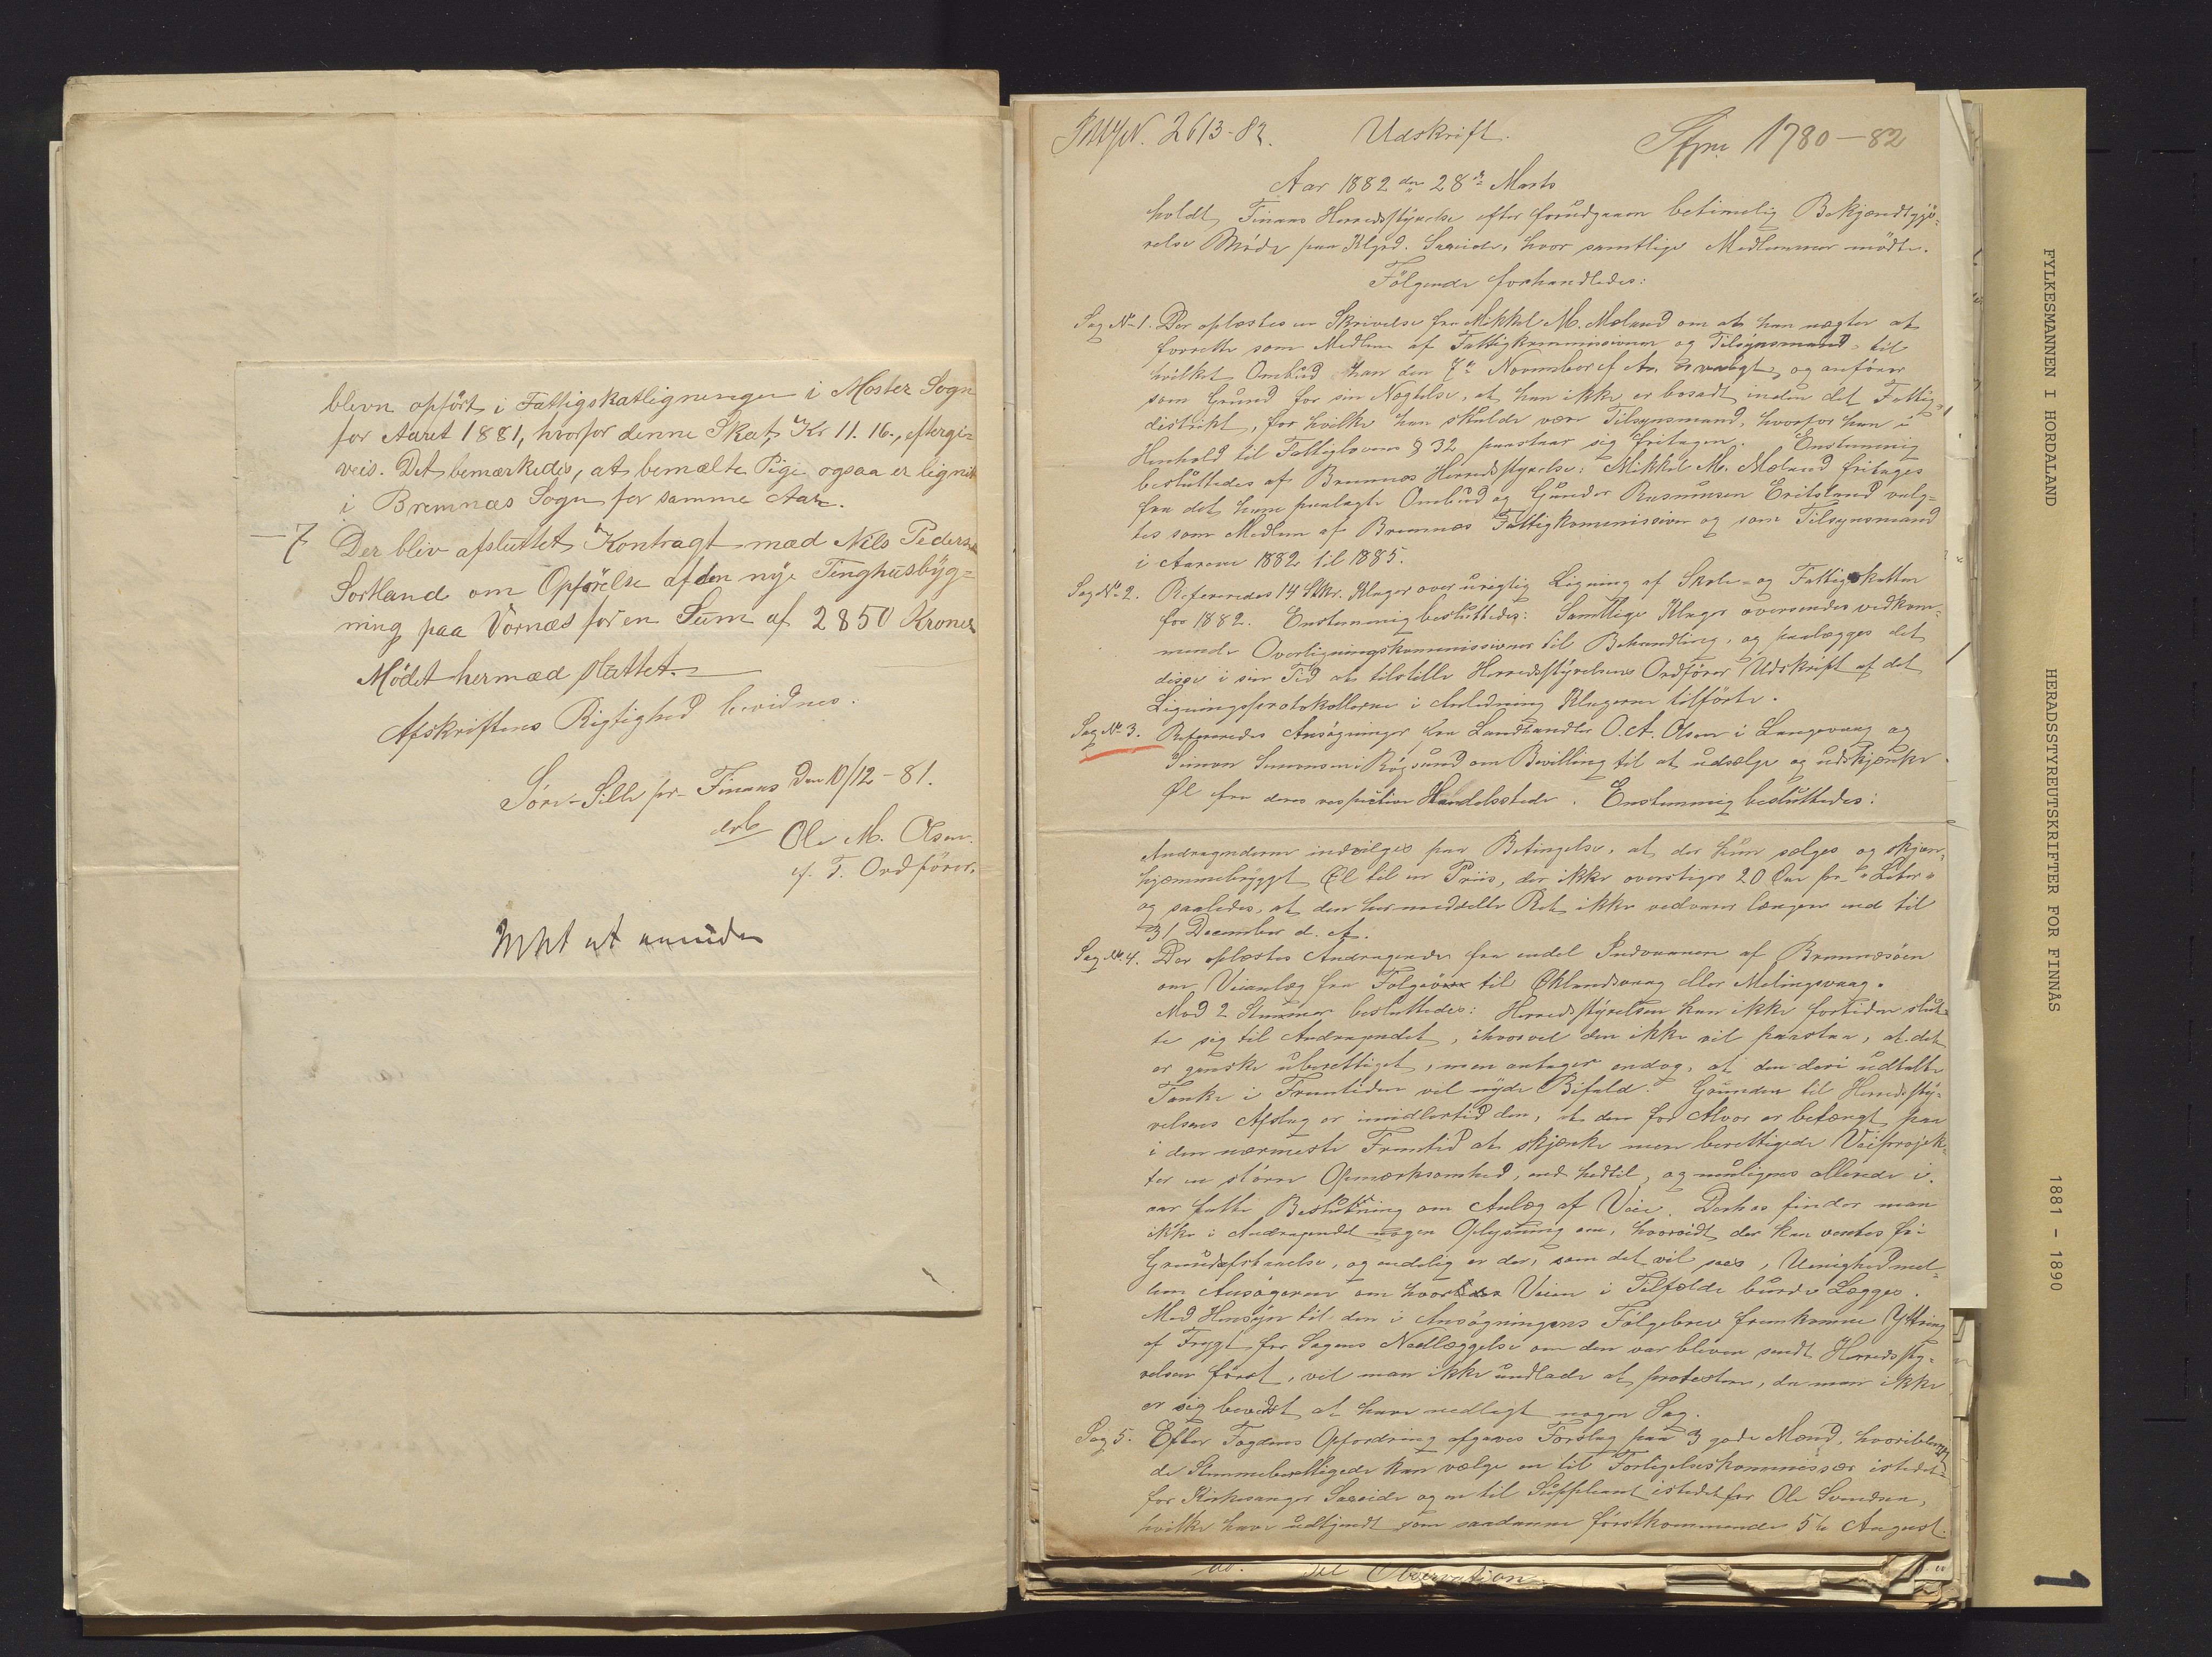 bleven opført i Fattigskatligningen i Moster Sogn
for Aaret 1881, hvorfor denne Skat, Kr 11.16., eftergi=
veis. Det bemærkedes, at bemælte Pige ogsaa er lignet
i Bremnæs Sogn for samme Aar.
– 7 Der blev afsluttet Kontragt med Nils Pedersen
Sortland om Opførelse af den nye Tinghusbyg=
ning paa Vornæs for en Sum af 2850 Kroner
Mødet hermed sluttet.
Afskriftens Rigtighed bevidnes.
Søre-Sille pr. Finaas den 10/12-81.
Ole M. Olsen.
f. T. Ordfører.
Intet at erindre
2613-82. Udskrift. 1780-82
Aar 1882 den 28de Marts
holdt Finaas Herredsstyrelse efter forudgaaen betimelig Bekjendtgjø=
relse Møde paa Klgrd. Saaeide, hvor samtlige Medlemmer mødte.
Følgende forhandledes:
Sag No 1. Der oplæstes en Skrivelse fra Mikkel M. Mæland om at han nægter at
forrette som Medlem af Fattigkommissionen og Tilsynsmand, til
hvilket Ombud han den 7de November f. A. er valgt, og anfører
som Grund for sin Nægtelse, at han ikke er bosadt inden det Fattig=
distrikt, for hvilke han skulde være Tilsynsmand, hvorfor han i
Henhold til Fattigloven § 32 paastaar sig fritagen. Enstemmig
besluttedes af Bremnæs Herredsstyrelse: Mikkel M. Mæland fritages
fra det ham paalagte Ombud og Gunder Rasmussen Eritsland valg=
tes som Medlem af Bremnæs Fattigkommission og som Tilsynsmand
i Aarene 1882 til 1885.
Sag No 2. Refereredes 14 Stkr. Klager over urigtig Ligning af Skole- og Fattigskatten
for 1882. Enstemmig besluttedes: Samtlige Klager oversendes vedkom=
mende Overligningskommissioner til Behandling, og paalægges det
disse i sin Tid at tilstille Herredsstyrelsens Ordfører Udskrift af det
Ligningsprotokollerne i Anledning Klagerne tilførte.
Sag No 3. Refereredes Ansøgninger fra Landhandler O. A. Olsen i Langevaag og
Simon Simonsen i Røgsund om Bevilling til at udsælge og udskjænke
Øl fra deres respective Handelssteder. Enstemmig besluttedes:
Andragenderne indvilges paa Betingelse, at der kun sælges og skjæn=
hjemmebrygget Øl til en Priis, der ikke overstiger 20 Øre pr. "Liter"
og saaledes, at den her meddelte Ret ikke vedvarer længere end til
31 December d. A.
Sag No. 4. Der oplæstes Andragender fra endel Indvaanere af Bremnæsøen
om Veianlæg fra Følgerøen til Øklandsvaag eller Melingsvaag.
Mod 2 Stemmer besluttedes: Herredsstyrelsen kan ikke fortiden slut=
te sig til Andragendet, ihvorvel den ikke vil paastaa, at det
er ganske uberettiget, men antager endog, at den deri udtalte
Tanke i Fremtiden vil nyde Bifald. Grunden til Herredssty=
relsens Afslag er imidlertid den, at den for Alvor er betængt paa
i den nærmeste Fremtid at skjænke mere berettigede Veiprojek=
ter en større Opmærksomhed, end hidtil, og muligens allerede i
aar fatte Beslutning om Anlæg af Veie. Derhos finder man
ikke i Andragendet nogen Oplysning om, hvorvidt der kan ventes fri
Grundafstaaelse, og endelig er der, som det vil sees, Uenighed mel=
lem Ansøgerne om hvor Veien i Tilfælde burde Lægges.
Med Hensyn til den i Ansøgningens Følgebrev fremkomne Yttring
af Frygt for Sagens Nedlæggelse om den var bleven sendt Herredssty=
relsen først, vil man ikke undlade at protestere, da man ikke
er sig bevidst at have nedlagt nogen Sag.
Sag 5. Efter Fogdens Opfordring afgaves Forslag paa 3 gode Mænd, hvoriblandt
de Stemmeberettigede kan vælge en til Forligelseskommissær istedet=
for Kirkesanger Saaeide og en til Suppleant istedetfor Ole Svendsen,
hvilke have udtjent som saadanne førstkommende 5te August.
do. til Observation
FYLKESMANNEN I HORDALAND
HERADSSTYREUTSKRIFTER FOR FINNÅS
1881 - 1890
1